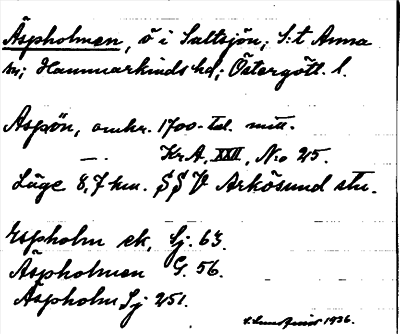 Äspholmen, ö i Saltsjön; S:t Anna
sn; Hammarkinds hd; Östergötl. l.
Aspön, omkr. 1700-tal. mitt.
—.— Kr.A. XXII, No 25.
Läge 8,7 km. SSV Arkösund stn.
Espholm ek, Sj. 63.
Äspholmen G. 56.
Äspholm Sj 251.
1936.